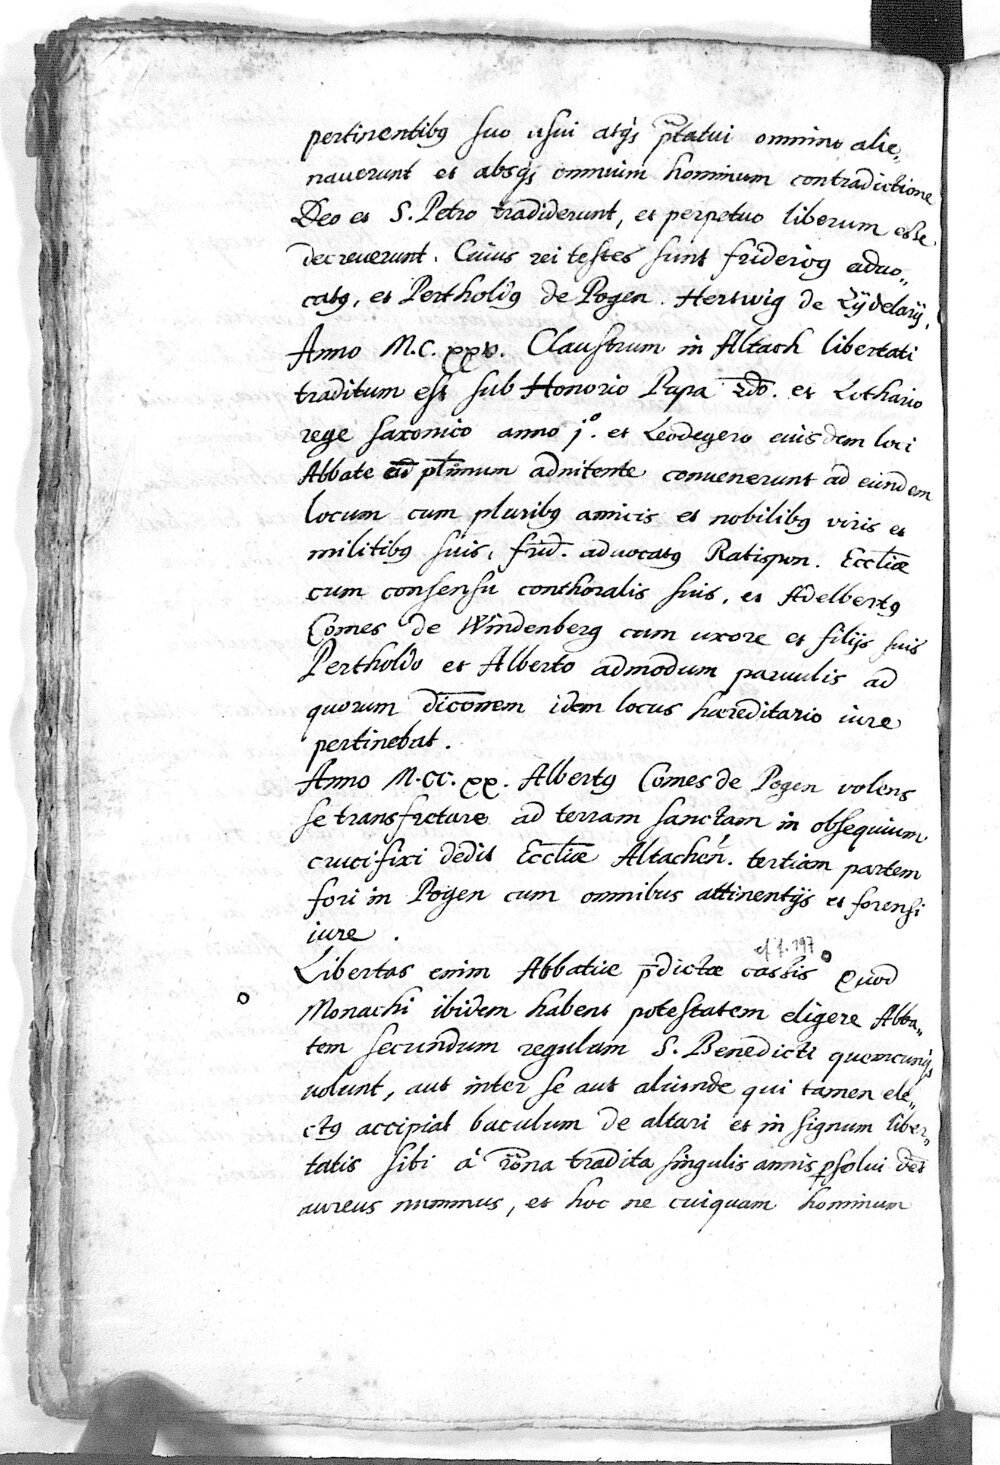 pertinentibꝰ suo usui atqꝫ p̄tatui omnino alie„
nauerunt et absqꝫ omnium hominum contradictione
Deo et S. Petro tradiderunt, et perpetuo liberum esse
decreuerunt. Cuius rei testes sunt fridericꝰ aduo„
catꝰ, et Pertholdꝰ de Pogen. Hertwig de
Anno M.C.xxv. Claustrum in Altach libertati
traditum est sub Honorio Papa 2do. et Lothario
rege saxonico anno j.o et Leodegero euisdem loci
Abbate adnitente conuenerunt ad eundem
locum cum pluribꝰ amicis et nobilibꝰ viris et
militibꝰ suis, frid. aduocatꝰ Ratispon. Eccl̄iæ
cum consensu conthoralis suis, et Adelbertꝰ
Comes de Windenberg cum uxore et filijs suis
Pertholdo et Alberto admodum paruulis ad
quorum dic̄onem idem locus hæreditario iure
pertinebat.
Anno M.CC.xx. Albertꝰ Comes de Pogen volens
se transfretare ad terram sanctam in obsequium
crucifixi dedit Eccl̄iæ Altachen̄. tertiam partem
fori in Pogen cum omnibus attinentijs et forensi
iure.
cf f. 197
Libertas enim Abbatiæ p̄dictæ Quod
Monachi ibidem habent potestatem eligere Abba„
tem secundum regulam S. Benedicti quemcunqꝫ
uolunt, aut inter se aut aliunde qui tamen ele„
ctꝰ accipiat baculum de altari et in signum liber„
tatis sibi à Rōna tradita singulis annis ꝑsolui det
aureus nummus, et hoc ne cuiquam hominum